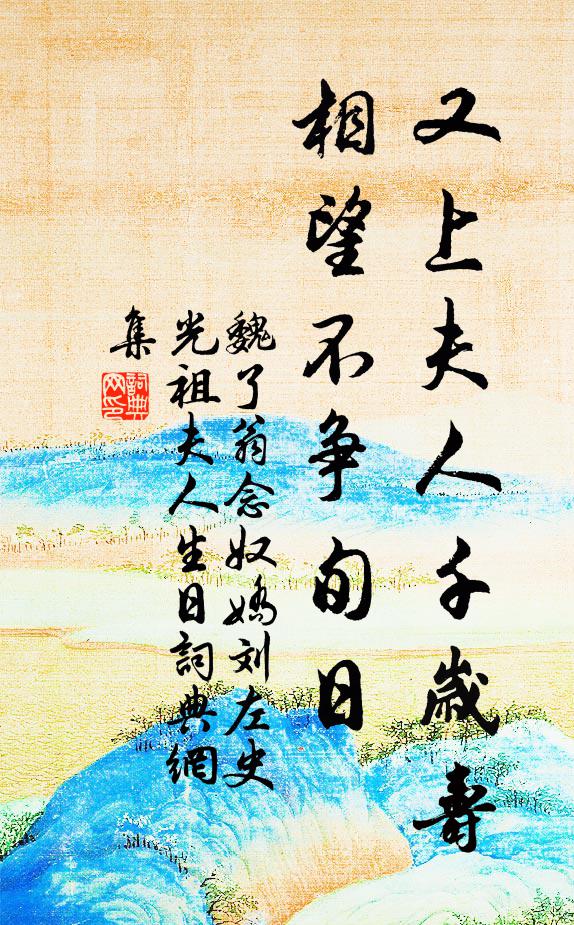 又上夫人千歲壽
相望不爭旬日
魏了翁念奴嬌刘左史
光祖夫人生日詞典網
集
詞典
网印